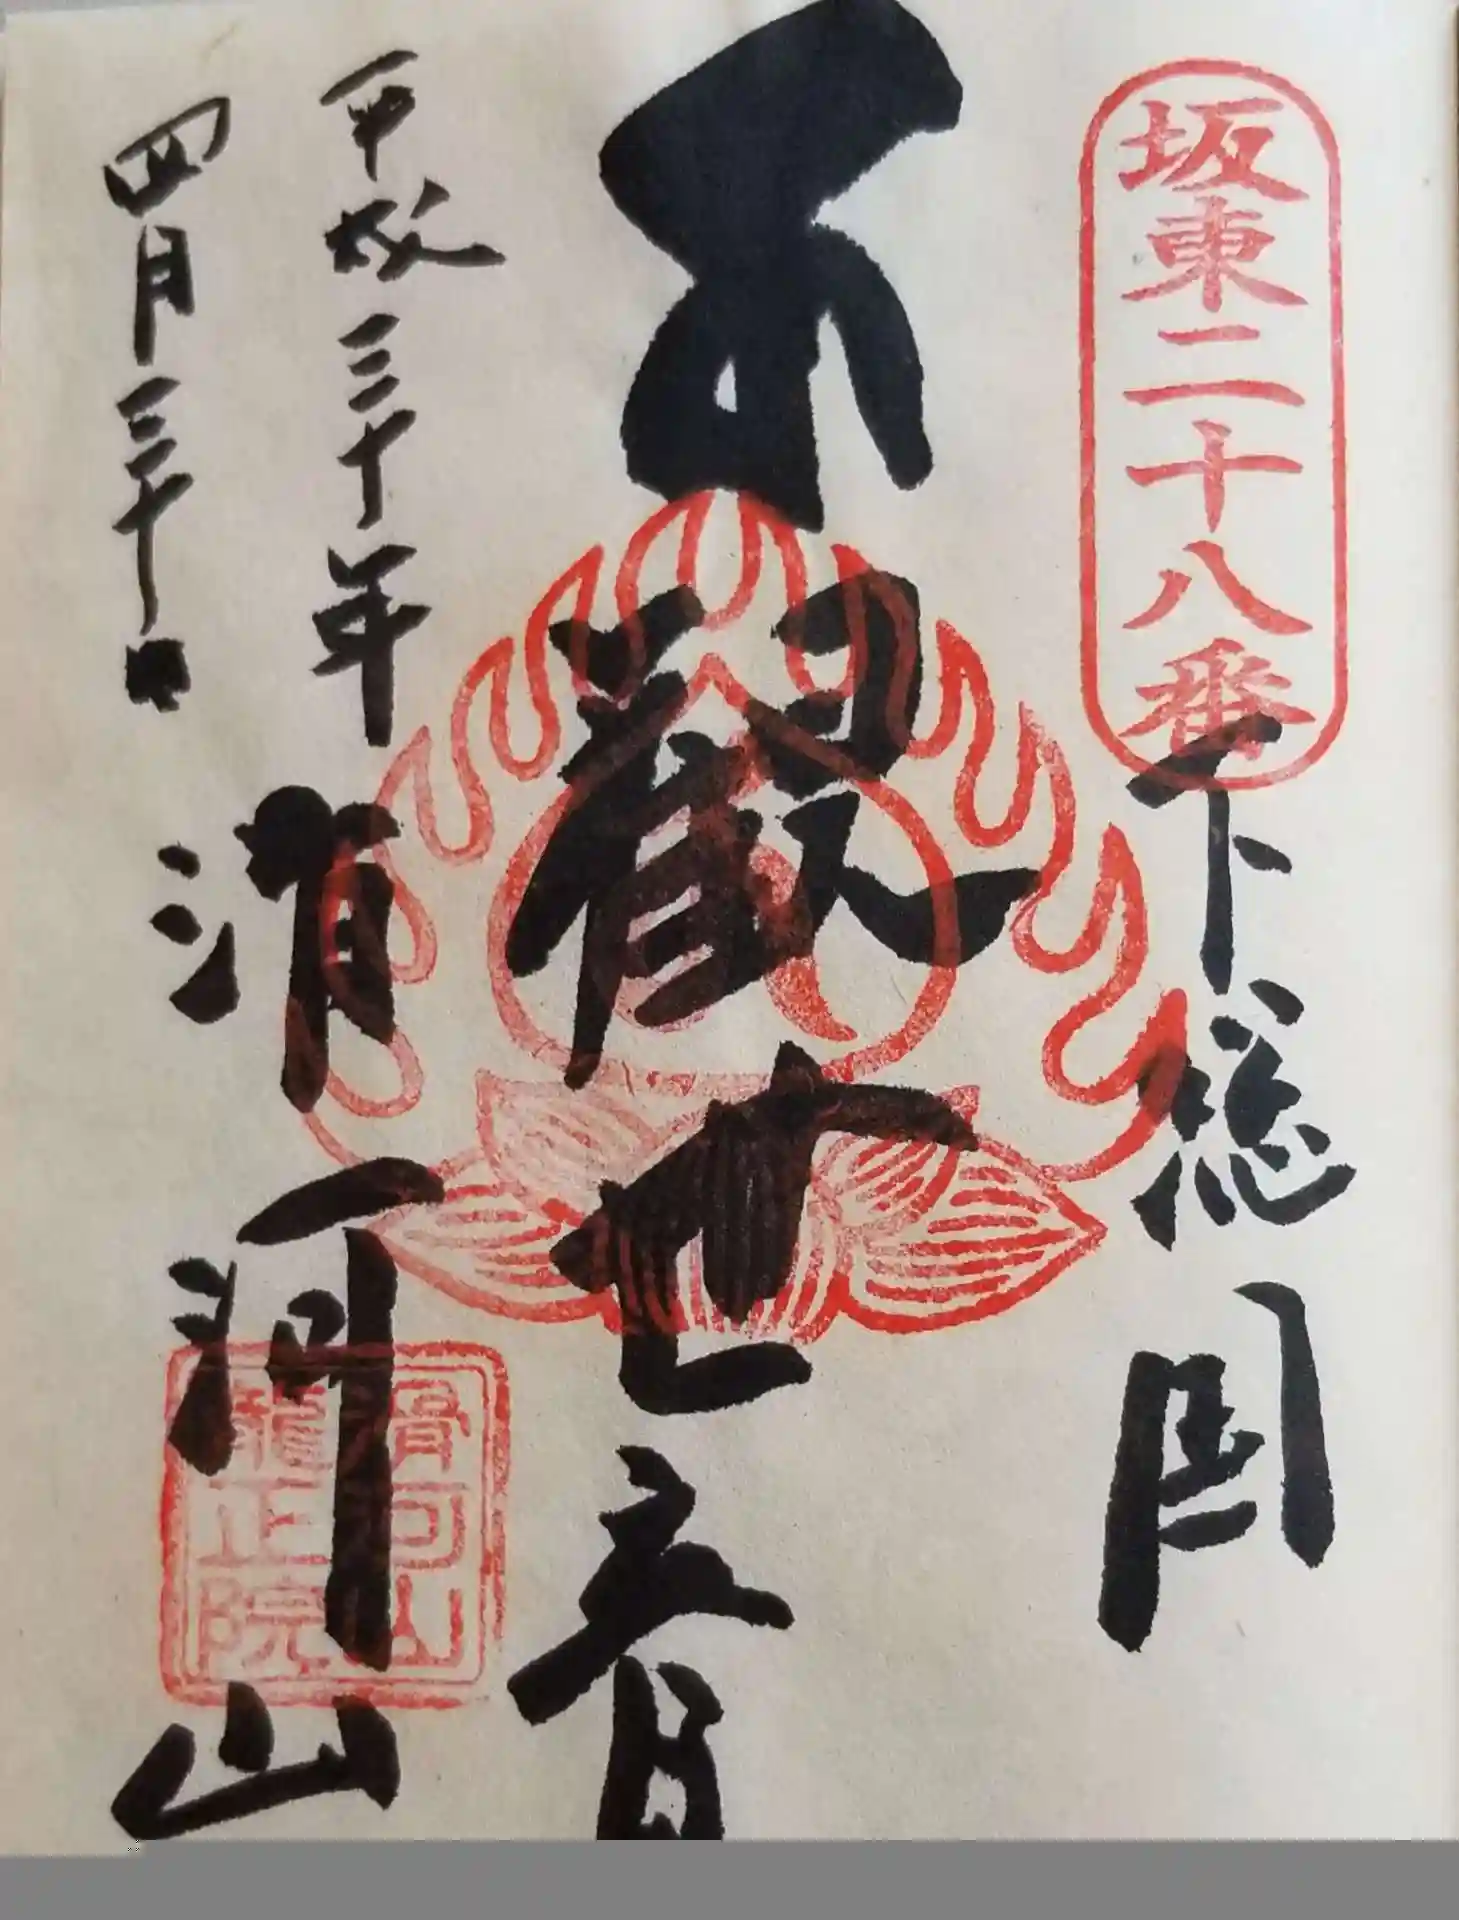 坂東二十八番
下総国
觀世音
平成三十年
四月三十日
滑河山
滑河山
龍正院